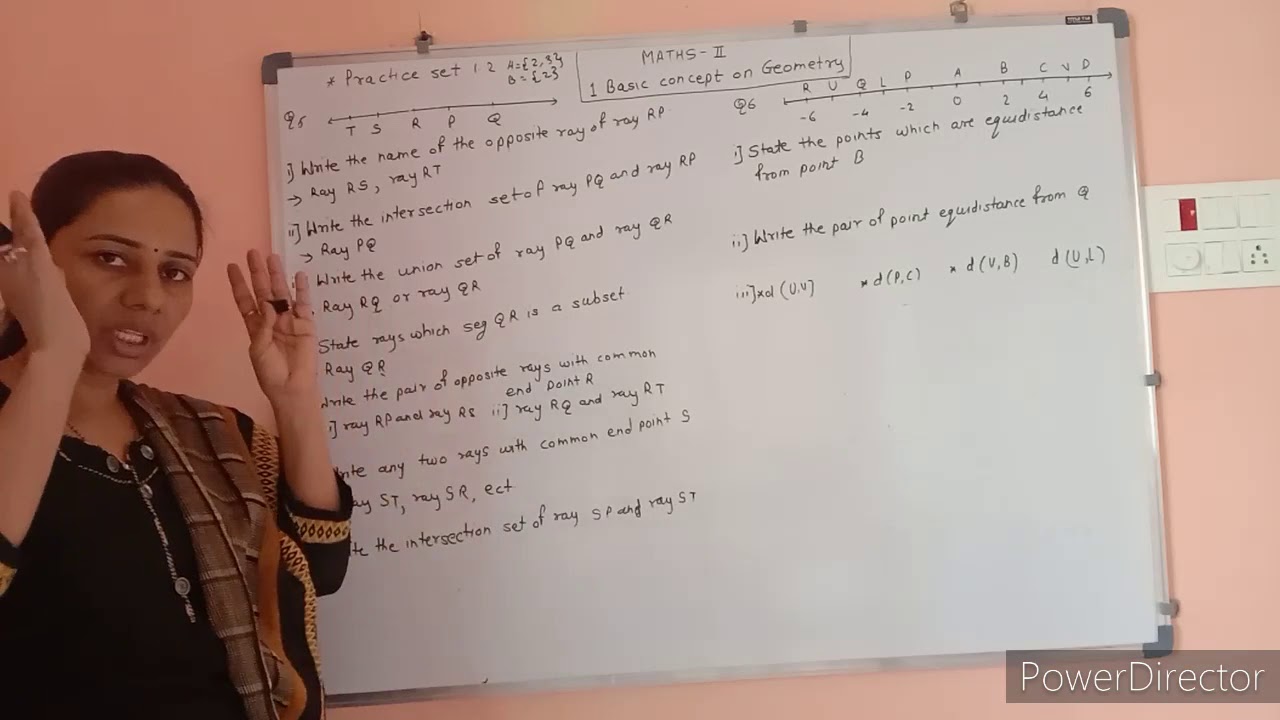 MATHS-II
1 Basic concept on Geometry
* Practice set 1.2 A={2,3}
B={2}
Q5
T S R P Q
i] Write the name of the opposite ray of ray RP
→ Ray RS, ray RT
ii] Write the intersection set of ray PQ and ray RP
→ Ray PQ
Write the union set of ray PQ and ray QR
Ray RQ or ray QR
State rays which seg QR is a subset
Ray QR
the pair of opposite rays with common
end point R
i] ray RP and ray RS ii] ray RQ and ray RT
any two rays with common end point S
ray ST, ray SR, ect
the intersection set of ray SP and ray ST
Q6
R U Q L P A B C V D
-6 -4 -2 0 2 4 6
i] State the points which are equidistance
from point B
ii] Write the pair of point equidistance from Q
iii]*d(U,V) *d(P,C) *d(V,B) d(U,L)
PowerDirector